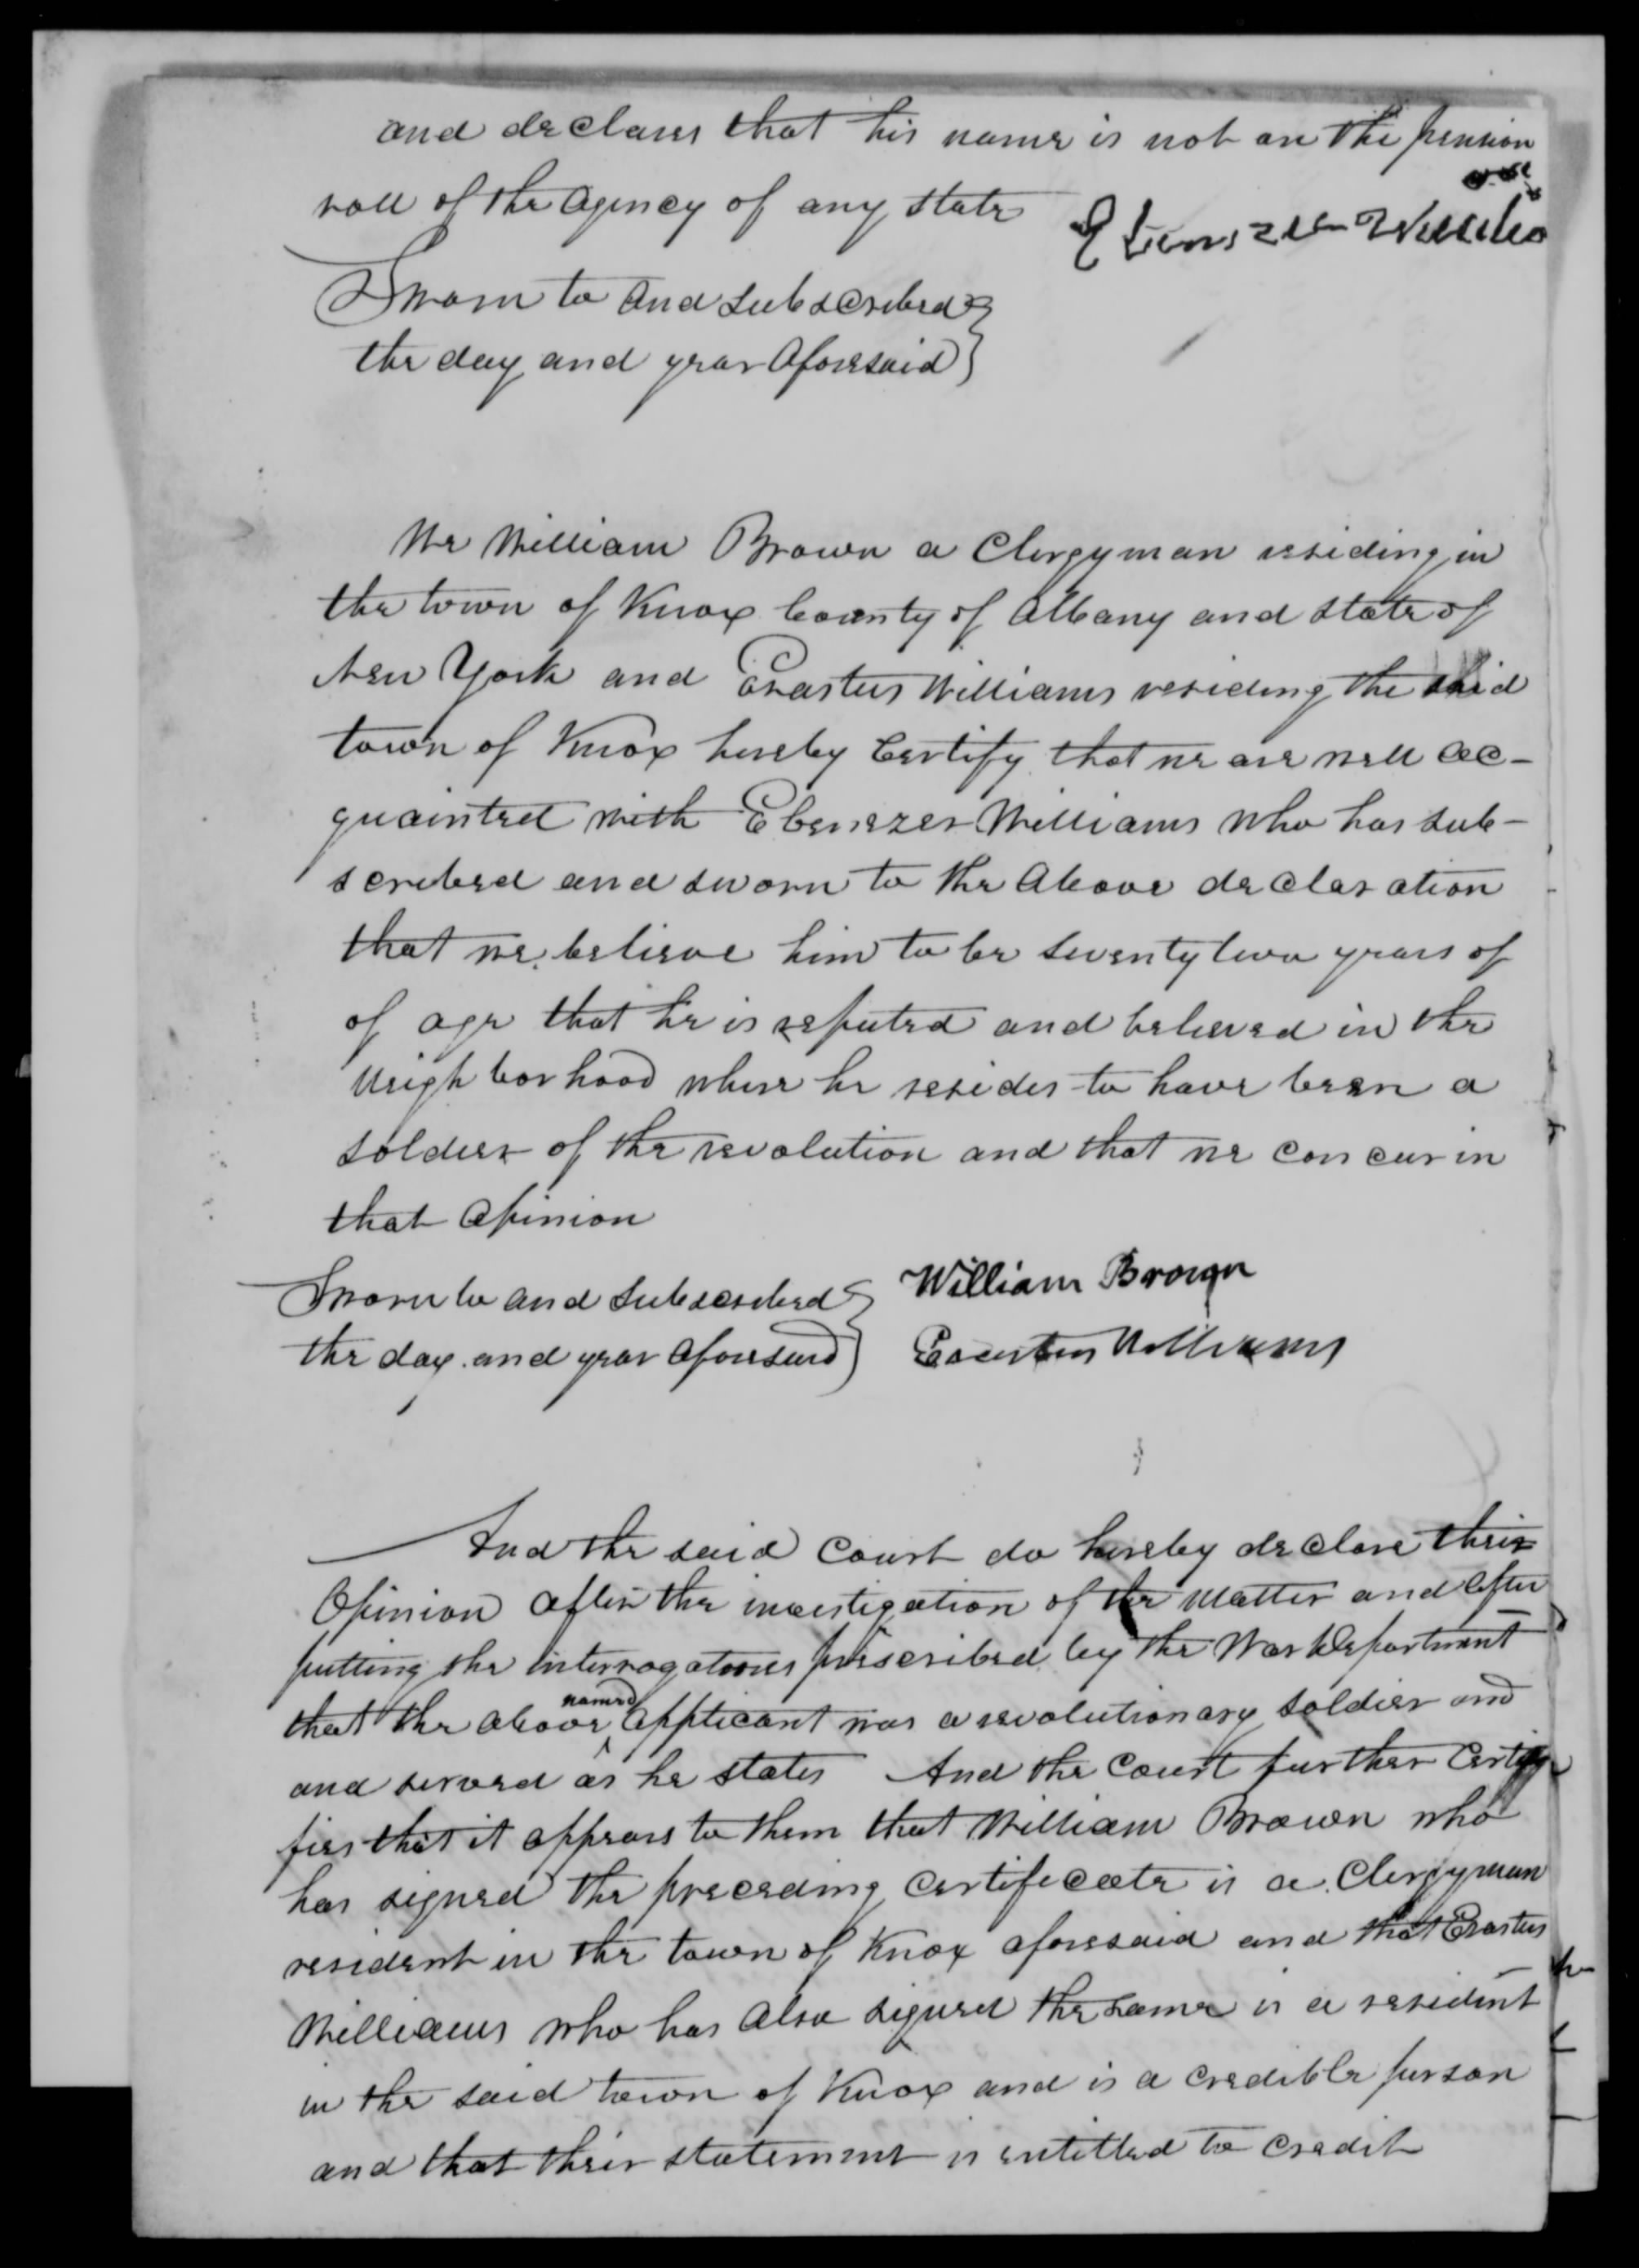 and declares that his name is not on the pension
roll of the agency of any state
Ebenezer Williams
Sworn to and subscribed
the day and year aforesaid
We William Brown a Clergyman residing in
the town of Knox County of Albany and State of
New York and Erastus Williams residing the said
town of Knox hereby Certify that we are well ac-
quainted with Ebenezer Williams who has sub-
scribed and sworn to the above declaration
that we believe him to be seventy two years of
of age that he is reputed and believed in the
neighborhood where he resides to have been a
soldier of the revolution and that we concur in
that opinion
Sworn to and subscribed
the day and year aforesaid
William Brown
Erastus Williams
And the said Court do hereby declare their
Opinion after the investigation of the matter and after
putting the interrogatories prescribed by the War Department
that the above named applicant was a revolutionary soldier and
and served as he states And the Court further Certi
fies that it appears to them that William Brown who
has signed the preceding certificate is a Clergyman
resident in the town of Knox aforesaid and that Erastus
Williams who has also signed the same is a resident
in the said town of Knox and is a credible person
and that their statement is entitled to credit